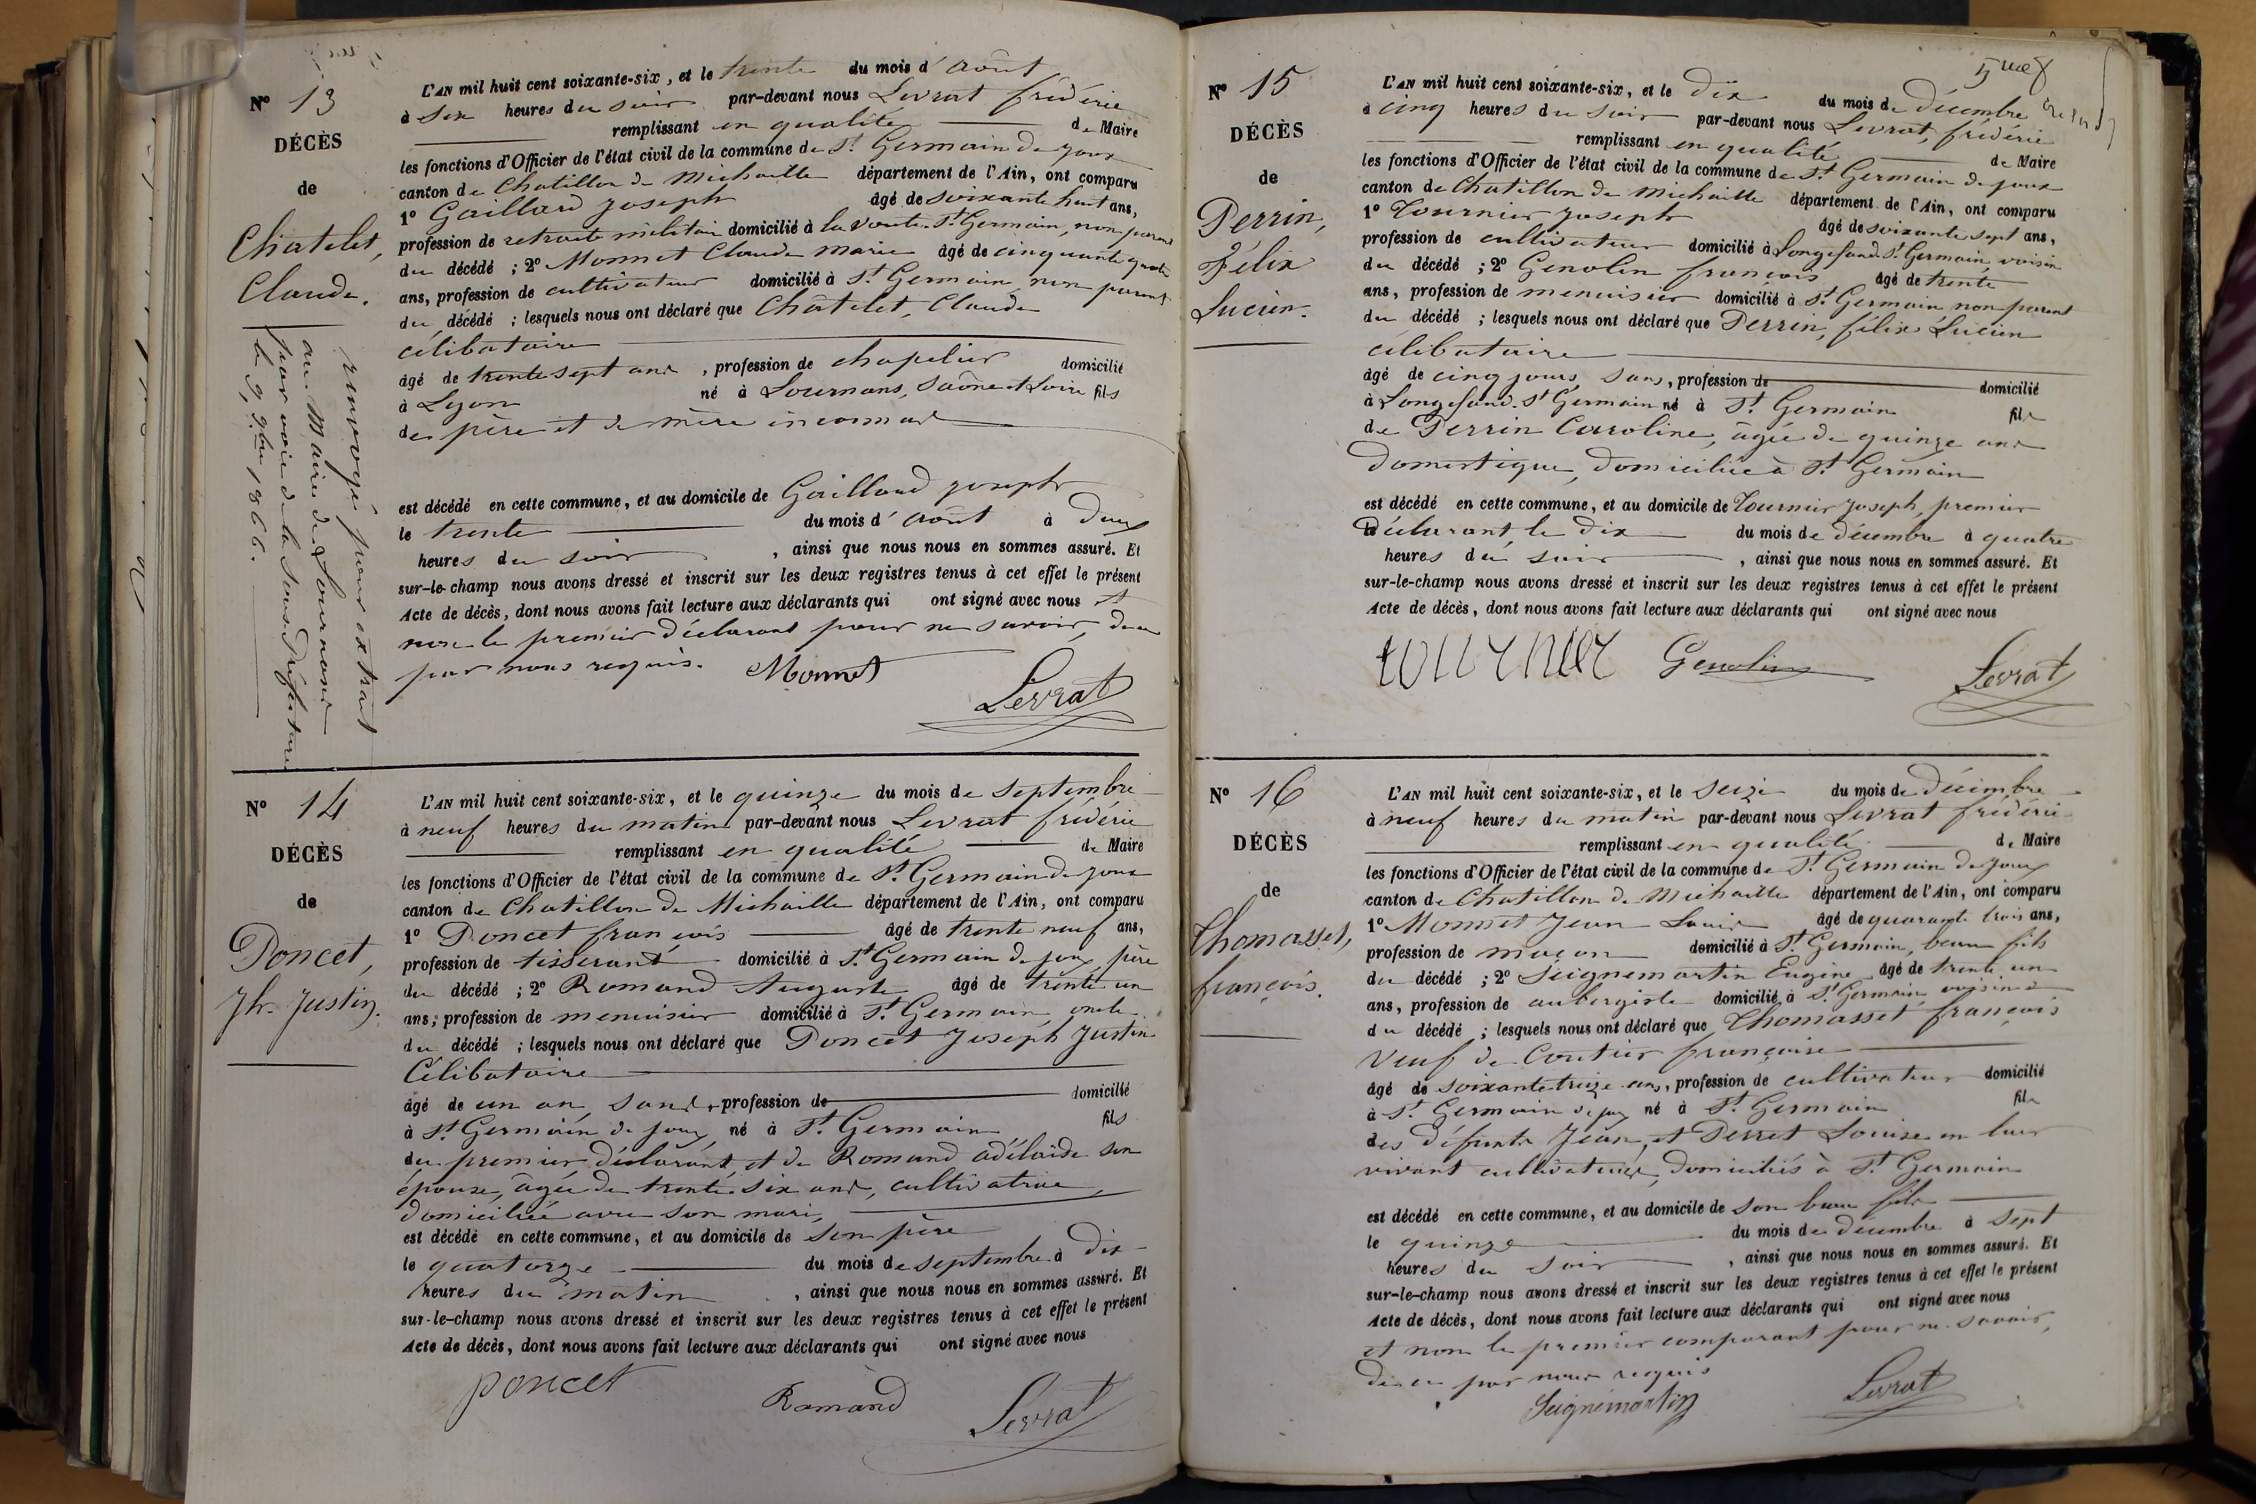 N° 13
DÉCÈS
de
Chatelet,
Claude.
renvoyé pour extrait
au Maire de Lournand
par voie de la Sous-Préfecture
le 9 9bre 1866.
L'AN mil huit cent soixante-six, et le trente du mois d'août
à six heures du soir par-devant nous Levrat frédéric
remplissant en qualité de Maire
les fonctions d'Officier de l'état civil de la commune de St Germain de joux
canton de Chatillon de Michaille département de l'Ain, ont comparu
1° Gaillard joseph âgé de soixante huit ans,
profession de retraité militaire domicilié à la Voute St Germain, non parent
du décédé ; 2° Monnet Claude marie âgé de cinquante quatre
ans, profession de cultivateur domicilié à St Germain non parent
du décédé ; lesquels nous ont déclaré que Châtelet, Claude
célibataire
âgé de trente sept ans, profession de chapelier domicilié
à Lyon né à Lournans, Saône et Loire fils
de père et de mère inconnus
est décédé en cette commune, et au domicile de Gaillard joseph
le trente du mois d'août à deux
heures du soir, ainsi que nous nous en sommes assuré. Et
sur-le-champ nous avons dressé et inscrit sur les deux registres tenus à cet effet le présent
Acte de décès, dont nous avons fait lecture aux déclarants qui ont signé avec nous et
non le premier déclarant pour ne savoir, de ce
par nous requis. Monnet
Levrat
N° 14
DÉCÈS
de
Poncet,
Jh. Justin.
L'AN mil huit cent soixante-six, et le quinze du mois de septembre
à neuf heures du matin par-devant nous Levrat frédéric
remplissant en qualité de Maire
les fonctions d'Officier de l'état civil de la commune de St Germain de joux
canton de Chatillon de Michaille département de l'Ain, ont comparu
1° Poncet françois âgé de trente neuf ans,
profession de tisserant domicilié à St Germain de joux, père
du décédé ; 2° Romand Auguste âgé de trente un
ans ; profession de menuisier domicilié à St Germain, oncle
du décédé ; lesquels nous ont déclaré que Poncet Joseph Justin
Célibataire
âgé de un an, sans profession de domicilié
à St Germain de joux, né à St Germain fils
du premier déclarant, et de Romand adélaïde son
épouse, âgée de trente six ans, cultivatrice,
domiciliée avec son mari,
est décédé en cette commune, et au domicile de son père
le quatorze du mois de septembre à dix
heures du matin, ainsi que nous nous en sommes assuré. Et
sur-le-champ nous avons dressé et inscrit sur les deux registres tenus à cet effet le présent
Acte de décès, dont nous avons fait lecture aux déclarants qui ont signé avec nous
poncet Romand Levrat
N° 15
DÉCÈS
de
Perrin,
Félix
Lucien.
L'AN mil huit cent soixante-six, et le dix du mois de décembre
à cinq heures du soir par-devant nous Levrat, frédéric
remplissant en qualité de Maire
les fonctions d'Officier de l'état civil de la commune de St Germain de joux
canton de Chatillon de Michaille département de l'Ain, ont comparu
1° Tournier joseph âgé de soixante sept ans,
profession de cultivateur domicilié à Longefand St Germain, voisin
du décédé ; 2° Genolin françois âgé de trente
ans, profession de menuisier domicilié à St Germain non parent
du décédé ; lesquels nous ont déclaré que Perrin, félix Lucien
célibataire
âgé de cinq jours, sans, profession de domicilié
à Longefand St Germain né à St Germain fils
de Perrin Caroline, âgée de quinze ans
domestique, domiciliée à St Germain
est décédé en cette commune, et au domicile de Tournier Joseph, premier
déclarant, le dix du mois de décembre à quatre
heures du soir, ainsi que nous nous en sommes assuré. Et
sur-le-champ nous avons dressé et inscrit sur les deux registres tenus à cet effet le présent
Acte de décès, dont nous avons fait lecture aux déclarants qui ont signé avec nous
tournier Genolin Levrat
N° 16
DÉCÈS
de
Thomasset,
françois.
L'AN mil huit cent soixante-six, et le seize du mois de décembre
à neuf heures du matin par-devant nous Levrat frédéric
remplissant en qualité de Maire
les fonctions d'Officier de l'état civil de la commune de St Germain de joux
canton de Chatillon de Michaille département de l'Ain, ont comparu
1° Monnet Jean Louis âgé de quarante trois ans,
profession de maçon domicilié à St Germain, beau fils
du décédé ; 2° Seignemartin Eugène âgé de trente un
ans, profession de aubergiste domicilié à St Germain, voisin
du décédé ; lesquels nous ont déclaré que Thomasset françois
veuf de Coutier françoise
âgé de soixante treize ans, profession de cultivateur domicilié
à St Germain de joux né à St Germain fils
des défunts Jean, et Perret Louise en leur
vivant cultivateurs, domiciliés à St Germain
est décédé en cette commune, et au domicile de son beau fils
le quinze du mois de décembre à sept
heures du soir, ainsi que nous nous en sommes assuré. Et
sur-le-champ nous avons dressé et inscrit sur les deux registres tenus à cet effet le présent
Acte de décès, dont nous avons fait lecture aux déclarants qui ont signé avec nous
et non le premier comparant pour ne savoir,
de ce par nous requis
Seignemartin Levrat